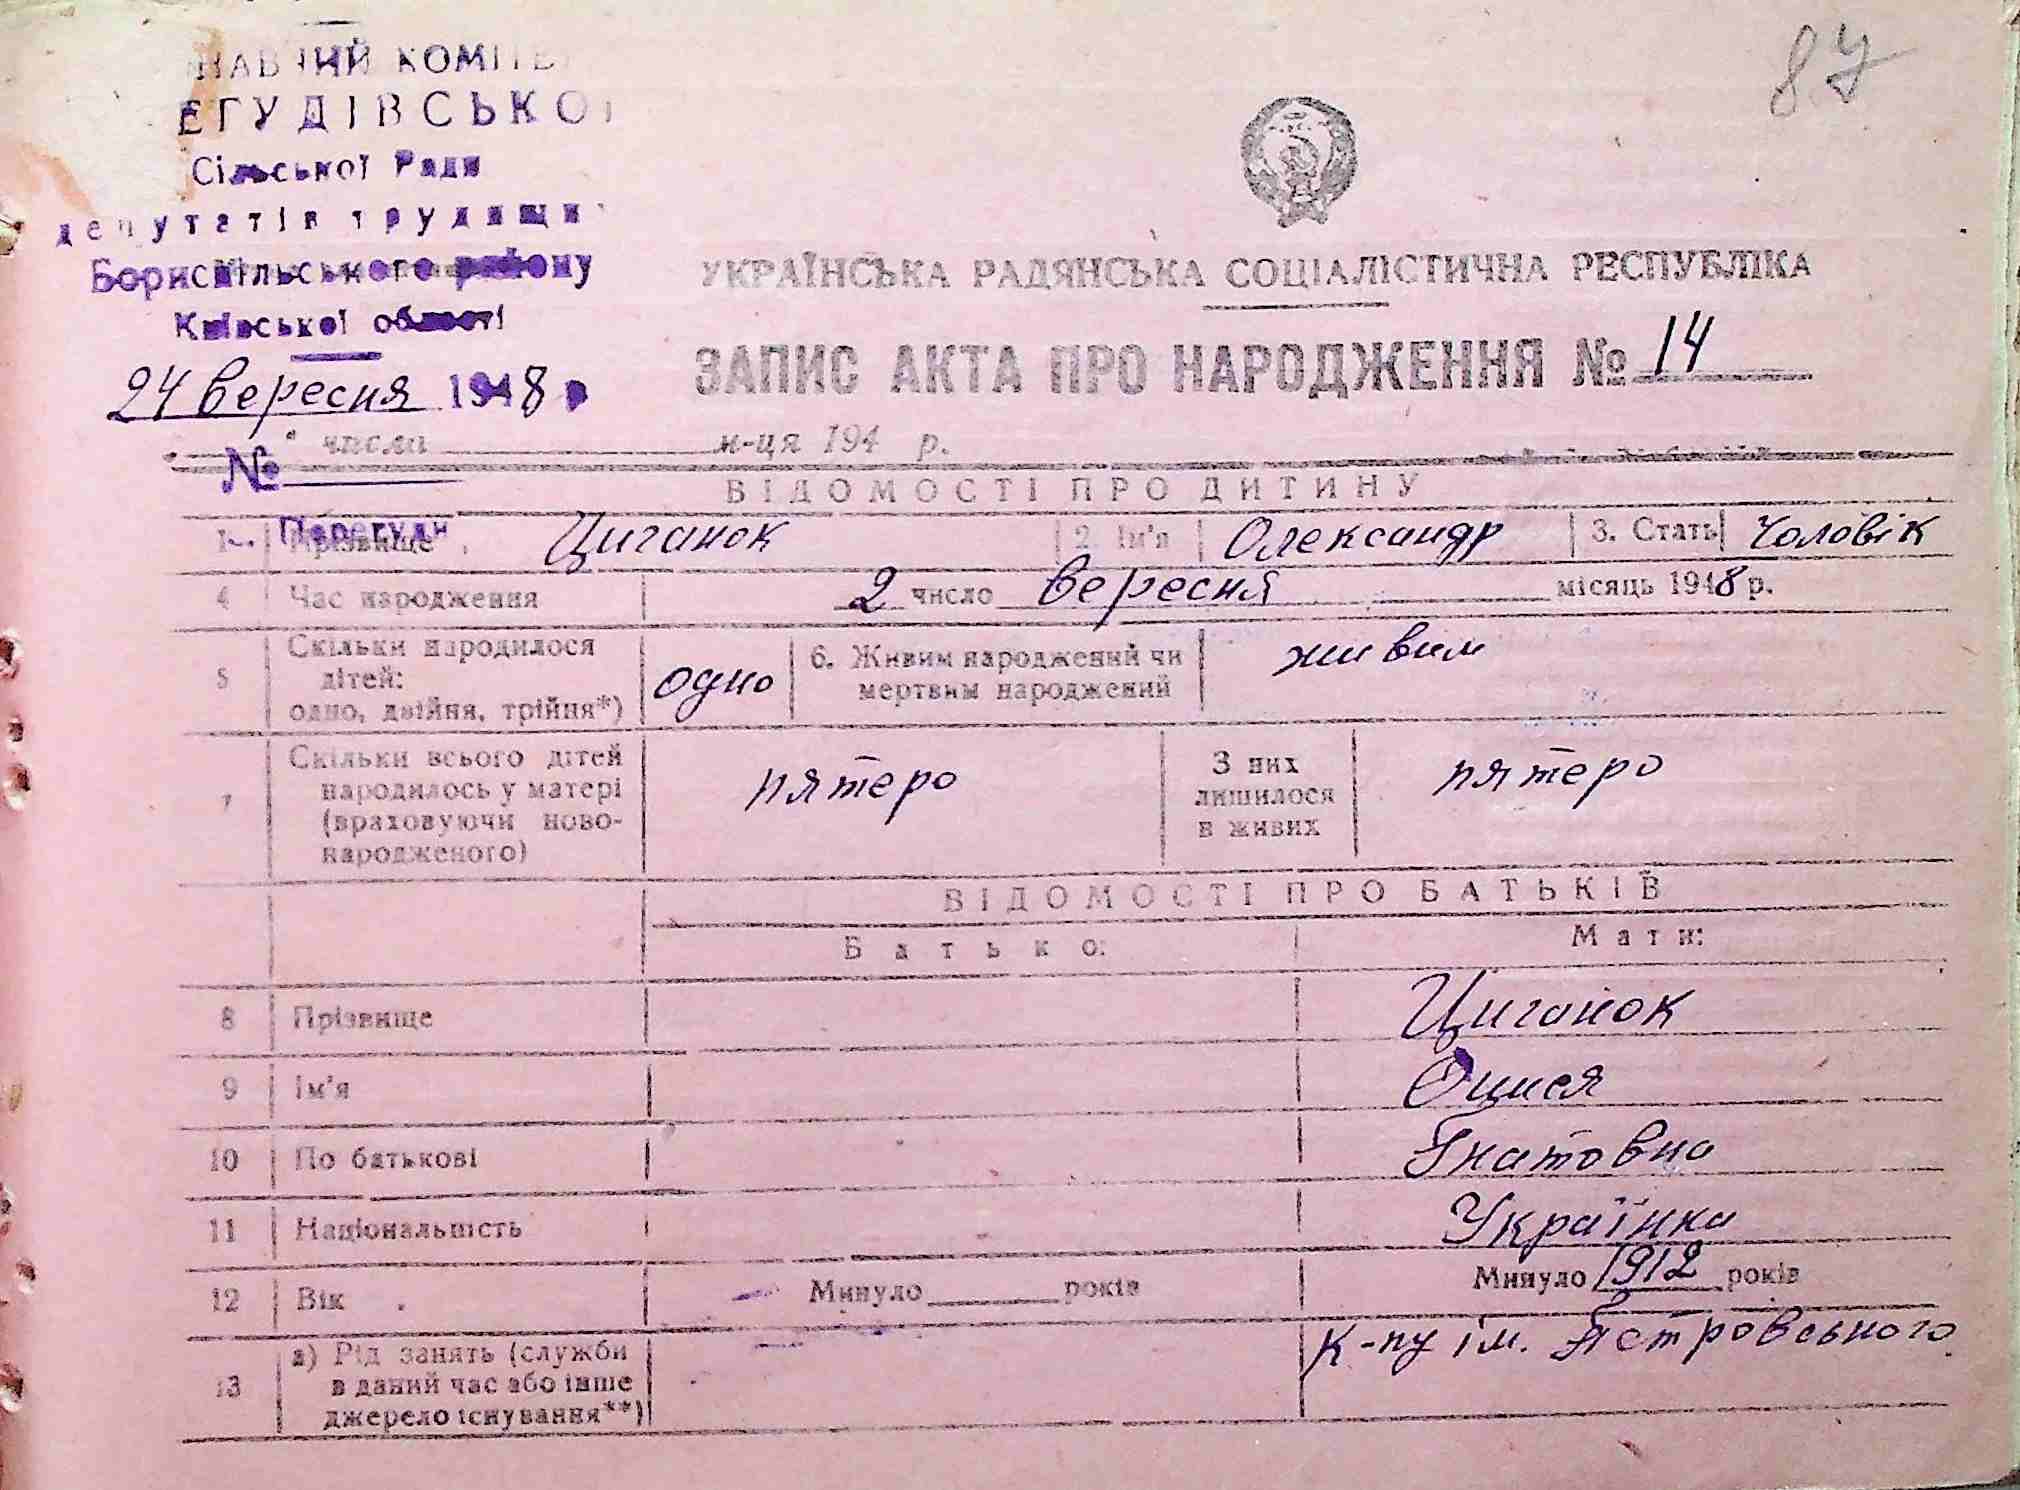 НАВЧИЙ КОМІТЕ
ЕГУДІВСЬКОЇ
Сільської Ради
депутатів трудящи
Бориспільського району
Київської області
24 вересня 1948 р
87
УКРАЇНСЬКА РАДЯНСЬКА СОЦІАЛІСТИЧНА РЕСПУБЛІКА
ЗАПИС АКТА ПРО НАРОДЖЕННЯ № 14
числа м-ця 194 р.
№
ВІДОМОСТІ ПРО ДИТИНУ
с. Перегуди
1 Прізвище Циганок 2. Ім'я Олександр 3. Стать чоловік
4 Час народження 2 число вересня місяць 1948 р.
5 Скільки народилося дітей: одно, двійня, трійня*) одно 6. Живим народжений чи мертвим народжений живим
7 Скільки всього дітей народилось у матері (враховуючи новонародженого) пятеро З них лишилося в живих пятеро
ВІДОМОСТІ ПРО БАТЬКІВ
Батько: Мати:
8 Прізвище Циганок
9 Ім'я
10 По батькові Гнатовна
11 Національність Українка
12 Вік Минуло років Минуло 1912 років
13 а) Рід занять (служби в даний час або інше джерело існування**) к-пу ім. Петровського